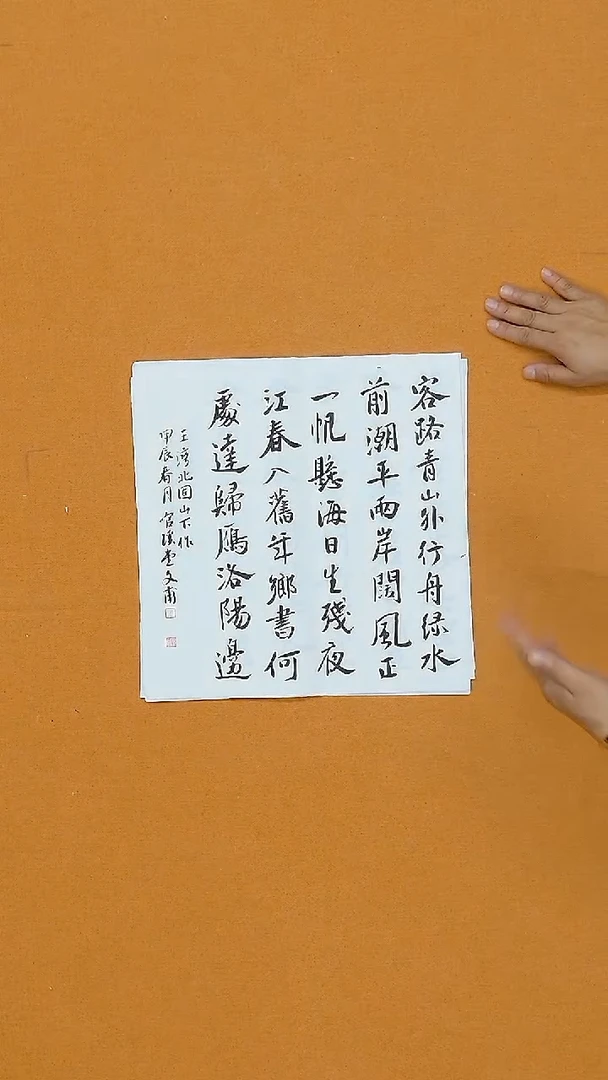 客路青山外行舟绿水
前潮平兩岸闊風正
一帆懸海日生殘夜
江春入舊年鄉書何
處達歸鴈洛陽邊
王灣北固山下作
甲辰春月官溪堂文甫